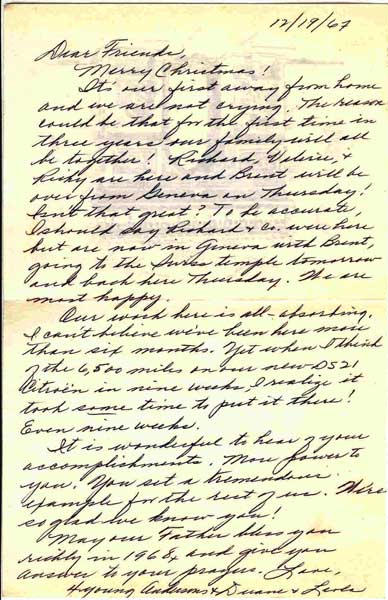 12/19/67
Dear Friends,
Merry Christmas!
It's our first away from home
and we are not crying. The reason
could be that for the first time in
three years our family will all
be together! Richard, Valerie, &
Ricky are here and Brent will be
over from Geneva on Thursday!
Isn't that great? To be accurate,
I should say Richard & Co. were here
but are now in Geneva with Brent,
going to the Swiss temple tomorrow
and back here Thursday. We are
most happy.
Our work here is all-absorbing.
I can't believe we've been here more
than six months. Yet when I think
of the 6,500 miles on our new DS21
Citroën in nine weeks, I realize it
took some time to put it there!
Even nine weeks.
It is wonderful to hear of your
accomplishments. More power to
you! You set a tremendous
example for the rest of us. We're
so glad we know you!
May our Father bless you
richly in 1968 and give you
answer to your prayers. Love,
4 young Andersons & Duane &